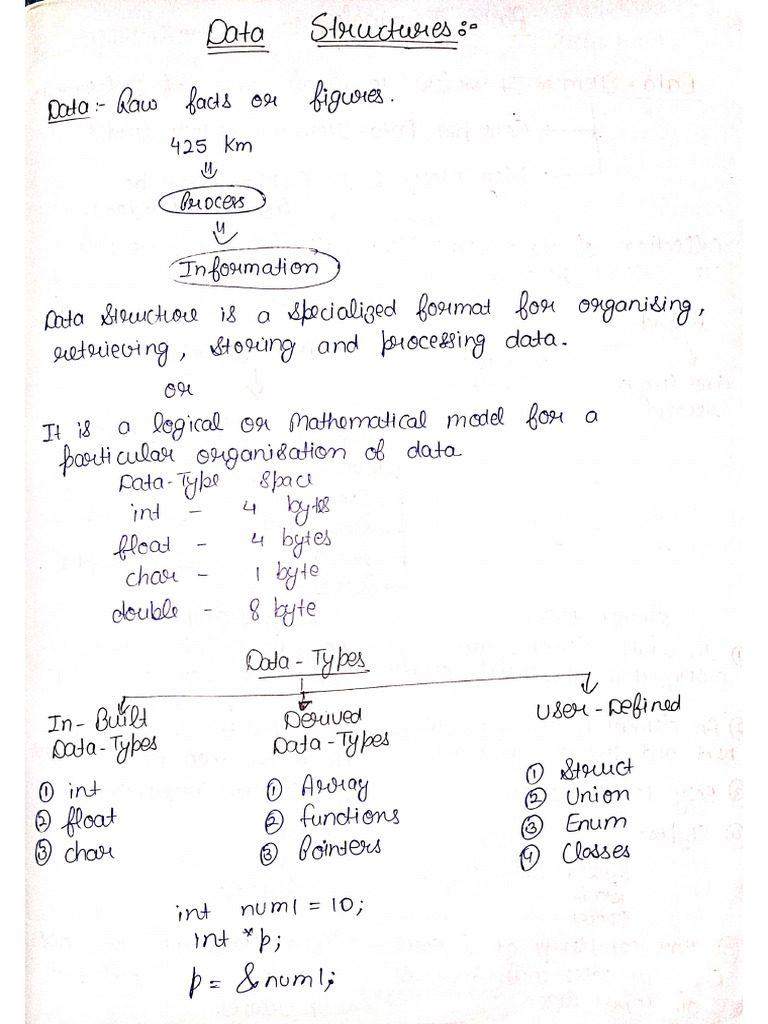 Data Structures:-
Data:- Raw facts or figures.
425 Km
Process
Information
Data Structure is a specialized format for organising,
retrieving, storing and processing data.
or
It is a logical or Mathematical model for a
particular organisation of data
Data-Type Space
int - 4 bytes
float - 4 bytes
char - 1 byte
double - 8 byte
Data-Types
In-Built Derived User-Defined
Data-Types Data-Types
① int ① Array ① Struct
② float ② functions ② Union
③ char ③ Pointers ③ Enum
④ Classes
int num1 = 10;
int *p;
p = &num1;